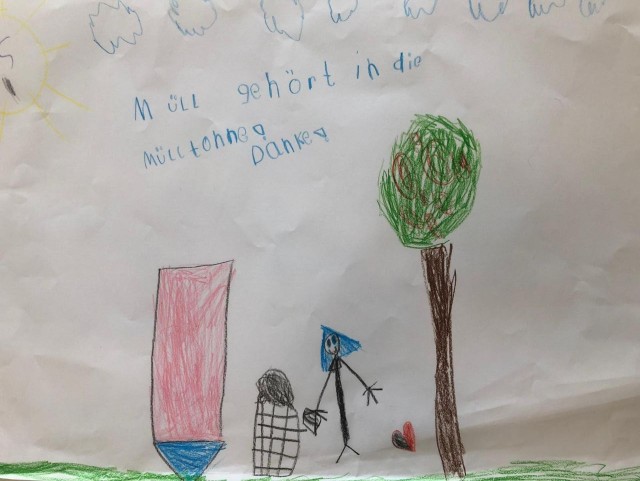 MÜLL gehört in die
MÜLLtohne!
DanKe!